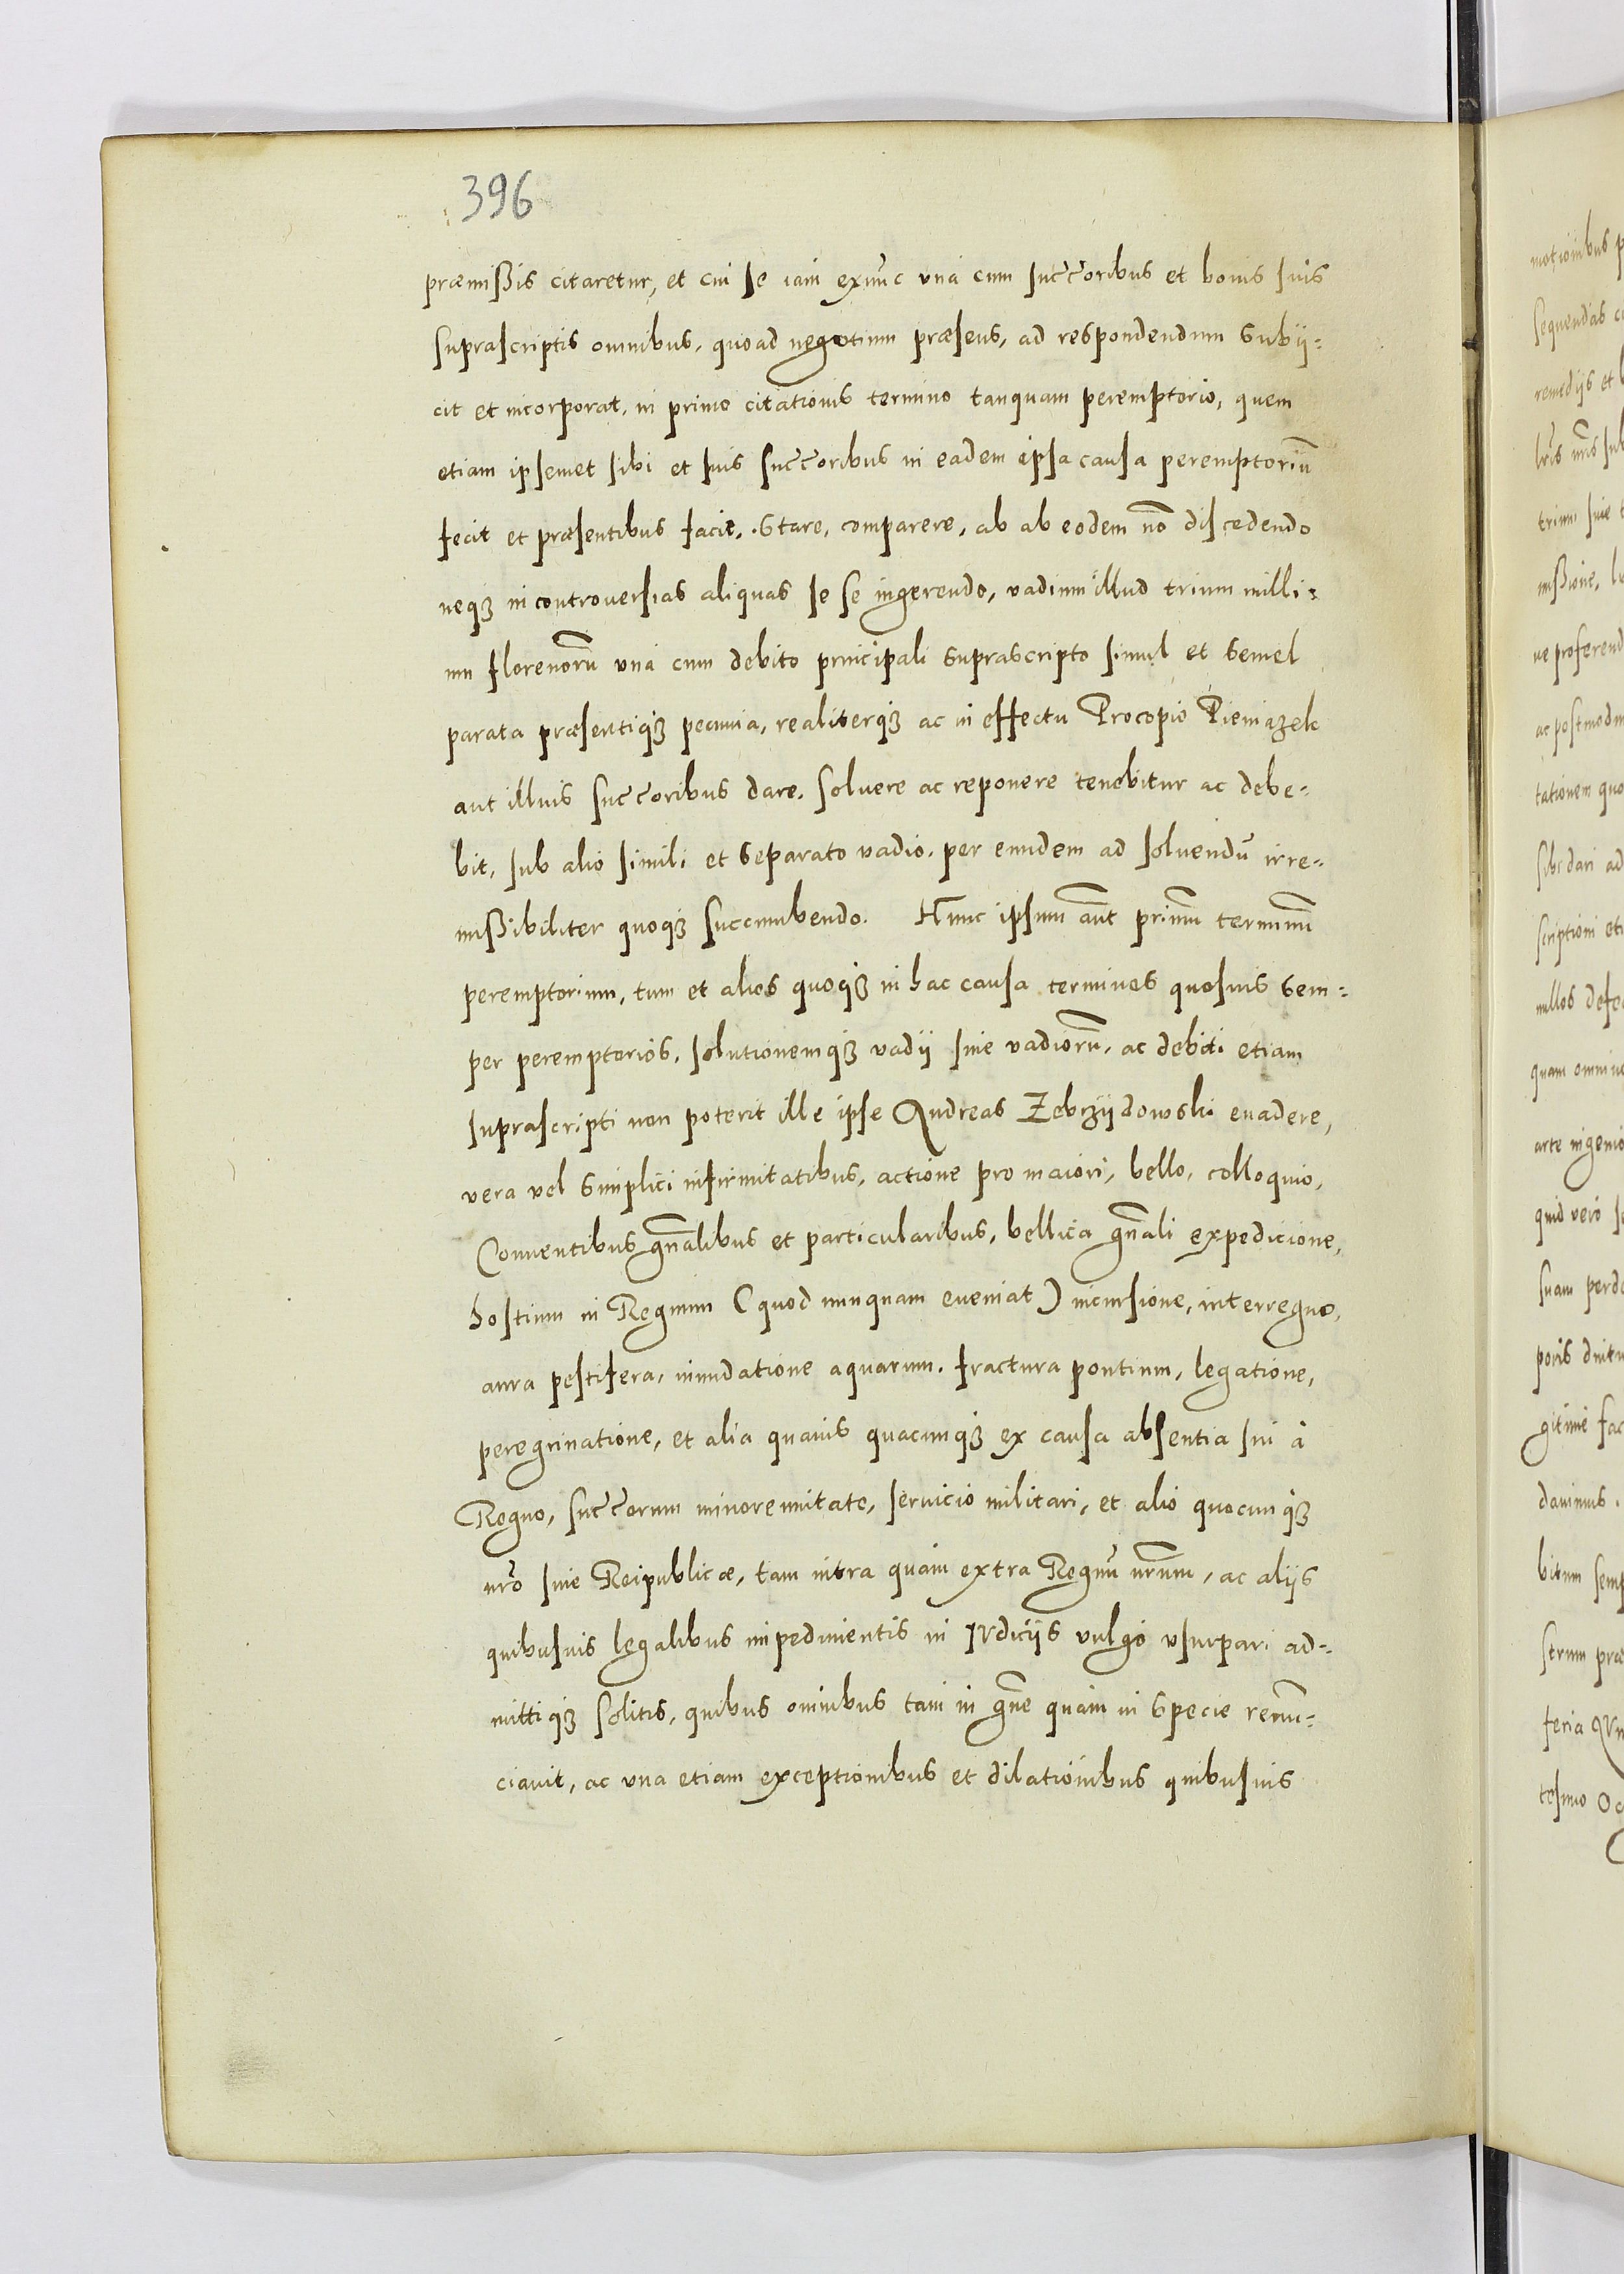 396
præmissis citaretur, et cui se iam exnũc vna cum succoribus et bonis suis
suprascriptis omnibus, quoad negotium præsens, ad respondendum subij=
cit et incorporat, in primo citationis termino tanquam peremptorio, quem
etiam ipsemet sibi et suis succoribus in eadem ipsa causa peremptoriũ
fecit et præsentibus facit. Stare, comparere, ab ab eodem nõ discedendo
neq3 in controuersias aliquas se se ingerendo, vadium illud trium milli=
um florenorũ vna cum debito principali suprascripto simul et semel
parata præsentiq3 pecunia, realiterq3 ac in effectu Procopio Pieniazek
aut illius succoribus dare, soluere ac reponere tenebitur ac debe=
bit, sub alio simili et separato vadio, per eundem ad soluendũ irre=
missibiliter quoq3 succumbendo. Hunc ipsum aũt primũ terminũ
peremptorium, tum et alios quoq3 in hac causa terminos quosuis sem=
per peremptorios, solutionemq3 vadij siue vadiorũ, ac debiti etiam
suprascripti non poterit ille ipse Andreas Zebrzijdowski euadere,
vera vel simplici infirmitatibus, actione pro maiori, bello, colloquio,
Conuentibus gñalibus et particularibus, bellica gñali expedicione,
hostium in Regnum (quod nunquam eueniat) incursione, interregno,
aura pestifera, inundatione aquarum, fractura pontium, legatione,
peregrinatione, et alia quauis quacumq3 ex causa absentia sui à
Regno, succorum minorennitate, seruicio militari, et alio quocunq3
nr̃o siue Reipublicæ, tam intra quàm extra Regnũ nr̃um, ac alijs
quibusuis legalibus impedimentis in Iudicijs vulgò vsurpari ad=
mittiq3 solitis, quibus omnibus tam in gñe quàm in specie renũ=
ciauit, ac vna etiam exceptionibus et dilationibus quibusuis